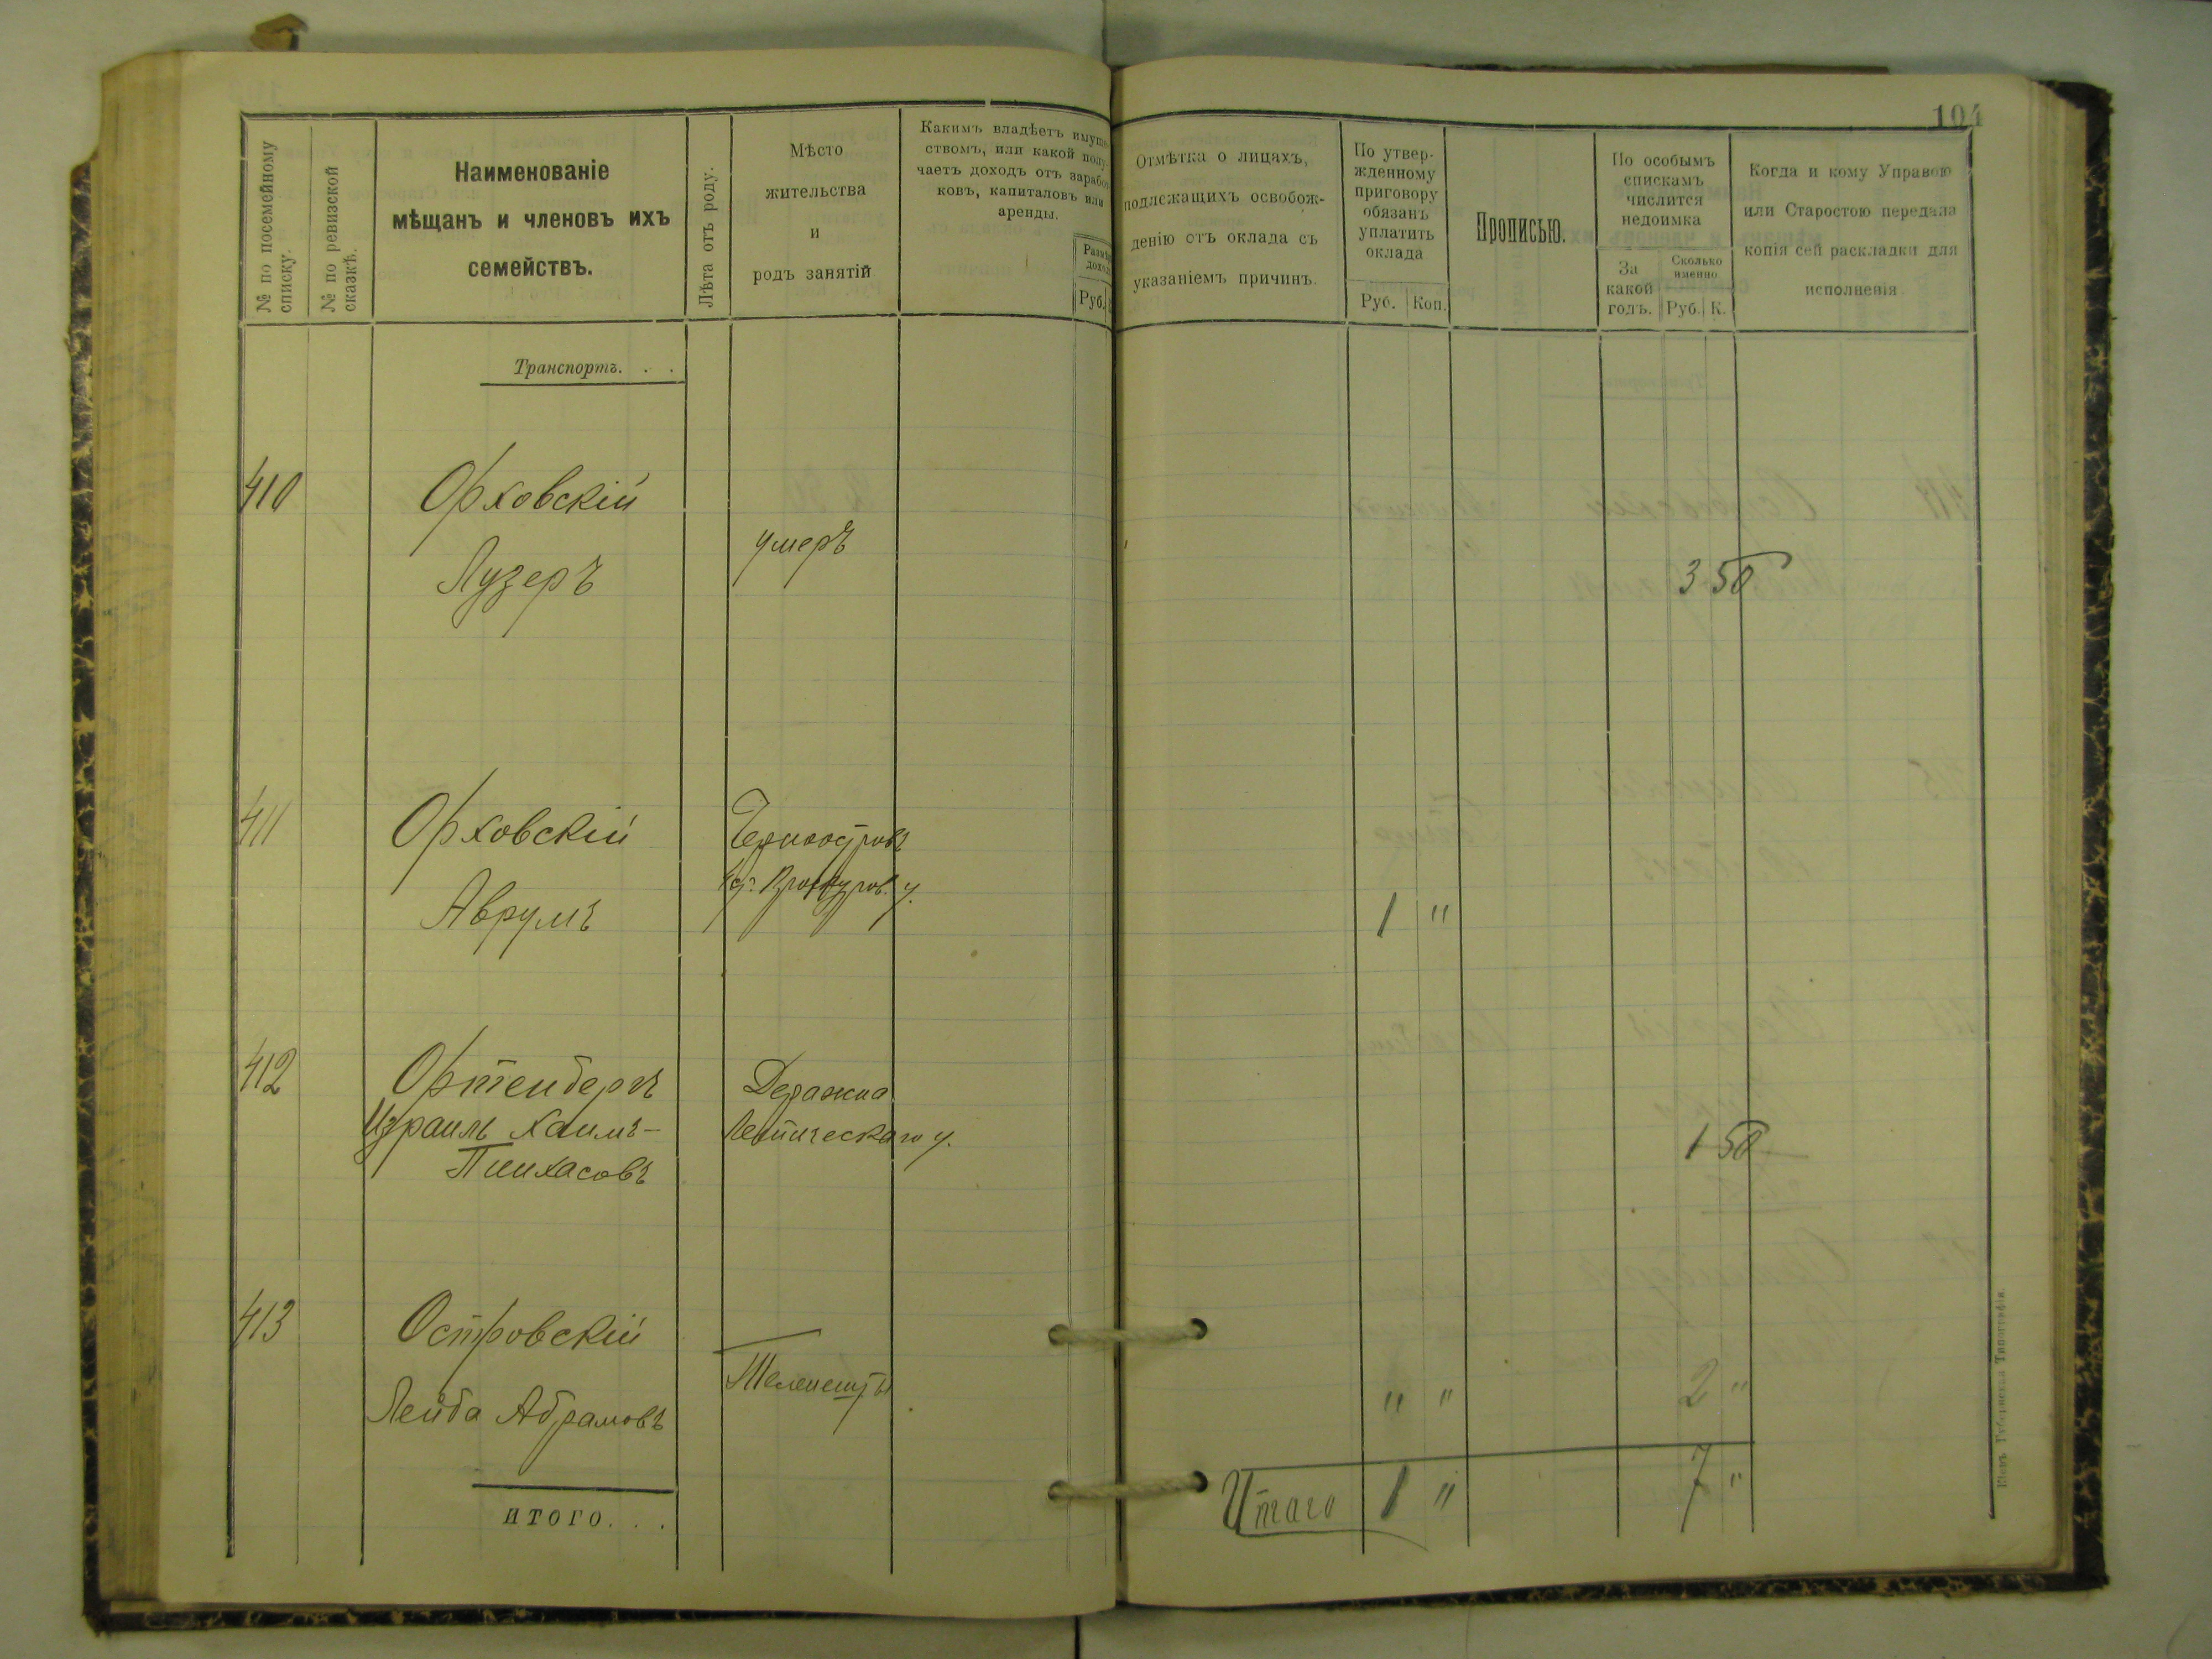 104
№ по посемейному списку.
№ по ревизской сказкѣ.
Наименованіе
мѣщанъ и членовъ ихъ
семействъ.
Лѣта отъ роду.
Мѣсто
жительства
и
родъ занятій
Какимъ владѣетъ имуще
ствомъ, или какой полу
чаетъ доходъ отъ зарабо
ковъ, капиталовъ или
аренды.
Размѣ
дохо
Руб.
Отмѣтка о лицахъ,
подлежащихъ освобож-
денію отъ оклада съ
указаніемъ причинъ.
По утвер-
жденному
приговору
обязанъ
уплатить
оклада
Руб. Коп.
Прописью.
По особымъ
спискамъ
числится
недоимка
За
какой
годъ.
Сколько
именно.
Руб. К.
Когда и кому Управою
или Старостою передана
копія сей раскладки для
исполненія.
Транспортъ. . .
410 Орховскій
Лузеръ
умеръ
3 50
411 Орховскій
Аврумъ
Черноостровъ
Проскуров. у.
1 "
412 Ортенбергъ
Израиль Хаимъ-
Пинхасовъ
Деражна
Летическаго у.
1 50
413 Островскій
Лейба Абрамовъ
Теленешты
" " 2 "
ИТОГО. . .
Итого 1 " 7 "
Кіевъ. Губернская Типографія.